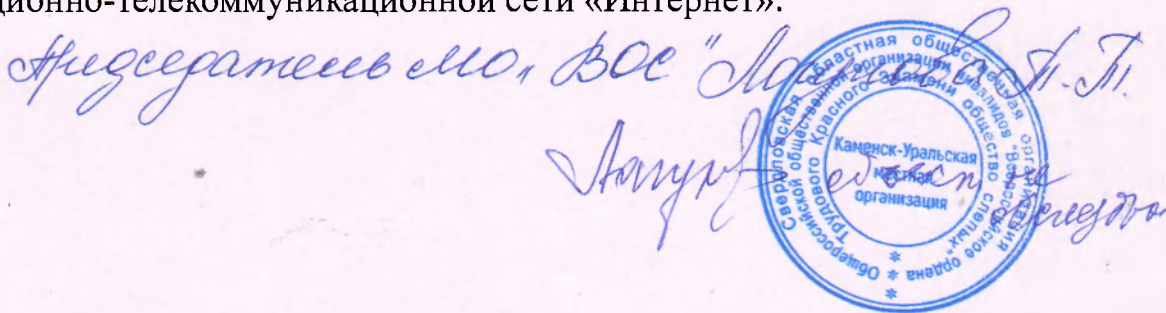 ционно-телекоммуникационной сети «Интернет».
Председатель МО „ВОС" Т.Т.
объект не
обследован
Свердловская областная общественная организация
Общероссийской общественной организации инвалидов "Всероссийское ордена
Трудового Красного Знамени общество слепых"
Каменск-Уральская
местная
организация